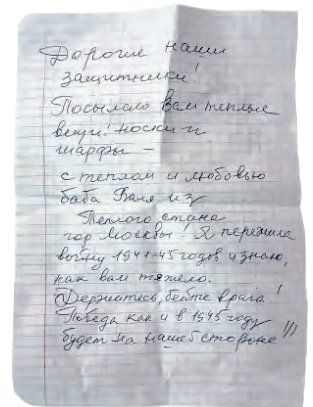 Дорогие наши
защитники!
Посылаю Вам теплые
вещи! носки и
шарфы –
с теплом и любовью
баба Валя из
Теплого стана
гор Москвы! Я пережила
войну 1941-45 годов и знаю,
как вам тяжело.
Держитесь, бейте врага!
Победа как и в 1945 году
будет на нашей стороне!!!